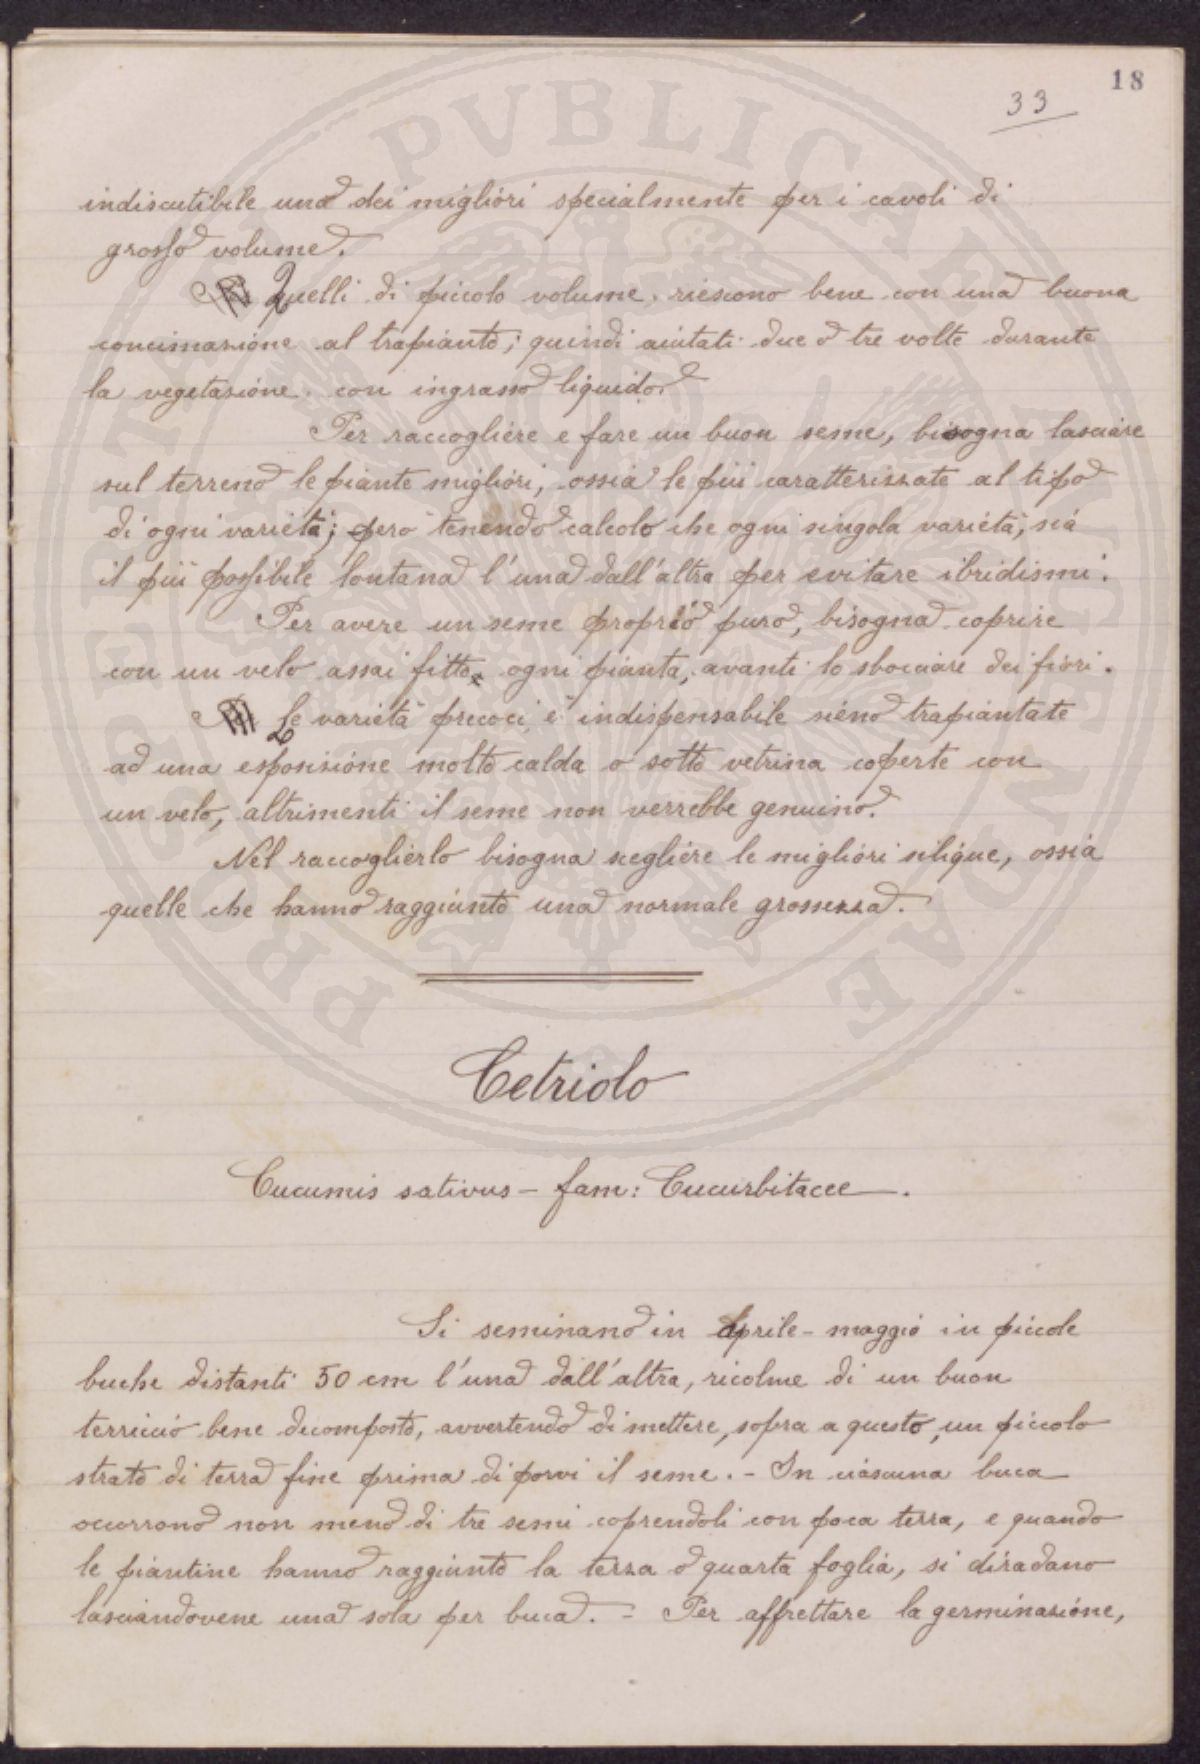 18
33
indiscutibile una dei migliori specialmente per i cavoli di
grosso volume.
Quelli di piccolo volume, riescono bene con una buona
concimazione al trapianto; quindi aiutati due o tre volte durante
la vegetazione con ingrasso liquido.
Per raccogliere e fare un buon seme, bisogna lasciare
sul terreno le piante migliori, ossia le più caratterizzate al tipo
di ogni varietà; però tenendo calcolo che ogni singola varietà, sia
il più possibile lontana l'una dall'altra per evitare ibridismi.
Per avere un seme proprio puro, bisogna coprire
con un velo assai fitto, ogni pianta, avanti lo sbocciare dei fiori.
Le varietà precoci è indispensabile sieno trapiantate
ad una esposizione molto calda o sotto vetrina coperte con
un velo, altrimenti il seme non verrebbe genuino.
Nel raccoglierlo bisogna scegliere le migliori silique, ossia
quelle che hanno raggiunto una normale grossezza.
Cetriolo
Cucumis sativus - fam: Cucurbitacee.
Si seminano in Aprile - maggio in piccole
buche distanti 50 cm l'una dall'altra, ricolme di un buon
terriccio bene decomposto, avvertendo di mettere, sopra a questo, un piccolo
strato di terra fine prima di porvi il seme. - In ciascuna buca
occorrono non meno di tre semi coprendoli con poca terra, e quando
le piantine hanno raggiunto la terza o quarta foglia, si diradano
lasciandovene una sola per buca. - Per affrettare la germinazione,
PROSPERITATI PVBLICAE AVGENDAE